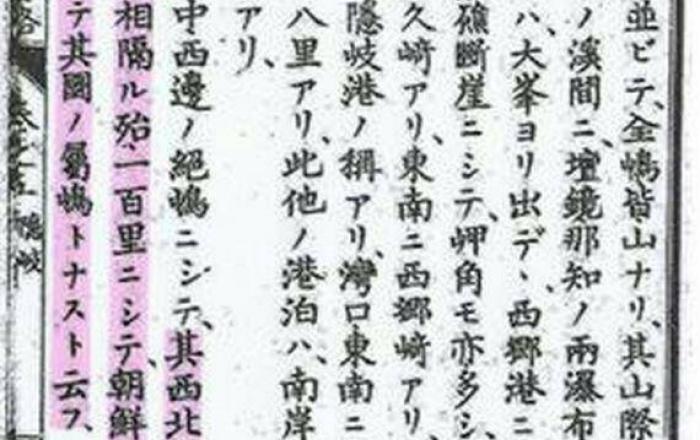 並ビテ、全嶋皆山ナリ、其山際
ノ溪間ニ、壇鏡那知ノ兩瀑布
ハ、大峯ヨリ出デ、西郷港ニ
礁斷崖ニシテ、岬角モ亦多シ、
久崎アリ、東南ニ西郷崎アリ、
隱岐港ノ稱アリ、灣口東南ニ
八里アリ、此他ノ港泊ハ、南岸
アリ、
中西邊ノ絕嶋ニシテ、其西北
相隔ル殆一百里ニシテ、朝鮮
テ其國ノ屬嶋トナスト云フ、
隱岐